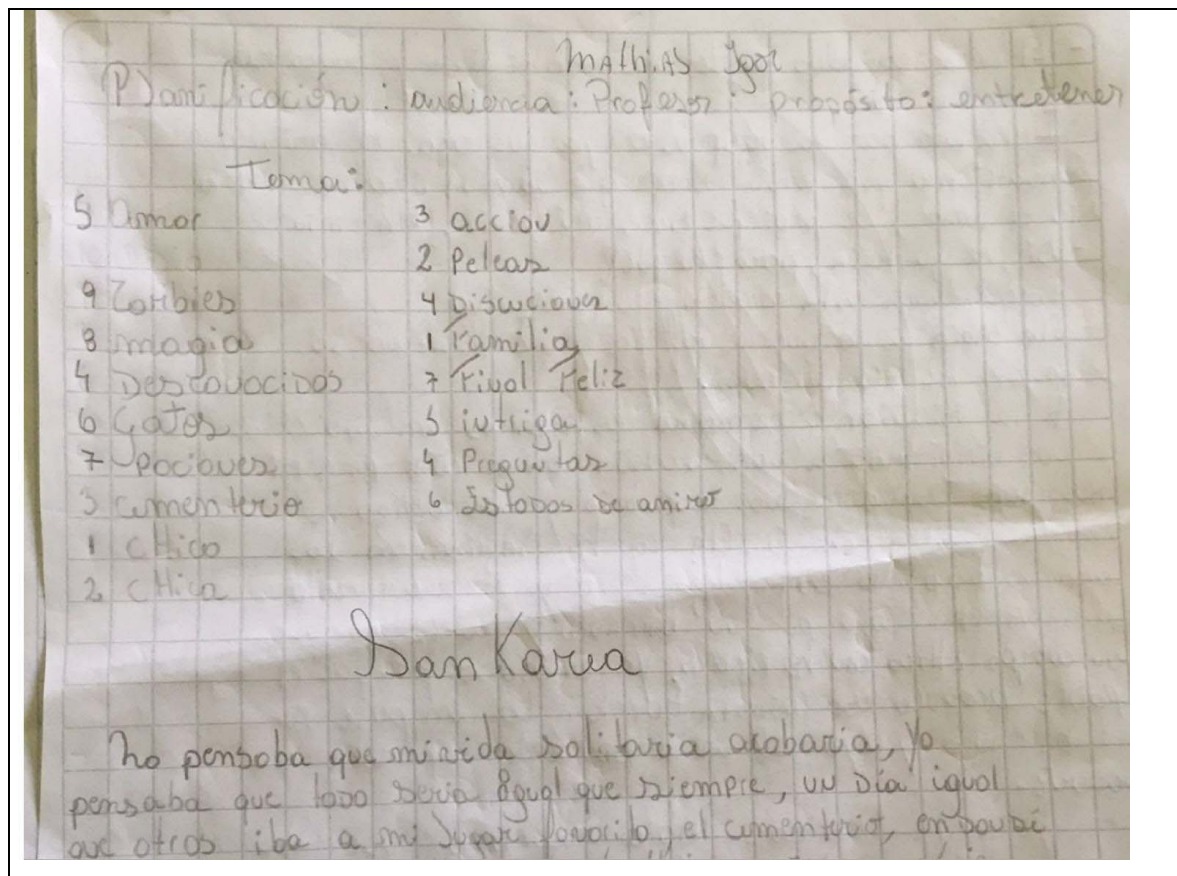 Mathias Igor
Planificación: audiencia: Profesor: propósito: entretener
Tema:
5 amor
9 Zombies
8 magia
4 Desconocidos
6 Gatos
7 Pociones
3 cementerio
1 CHico
2 CHica
3 acción
2 Peleas
4 Discuciones
1 Familia
7 Final Feliz
5 intriga
4 Preguntas
6 Estados de
San
no pensaba que mi vida solitaria acabaria, yo
pensaba que todo seria igual que siempre, un Dia igual
que otros iba a mi lugar favorito, el cementerio,